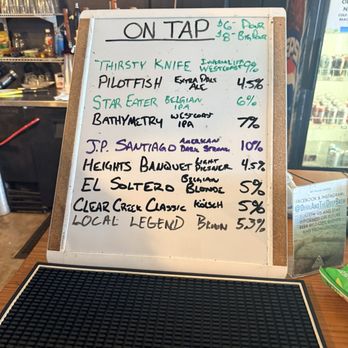 ON TAP
$6- POUR
THIRSTY KNIFE IMPERIAL WEST COAST IPA
PILOTFISH EXTRA PALE ALE 4.5%
STAR EATER BELGIAN IPA 6%
BATHYMETRY WESTCOAST IPA 7%
J.P. SANTIAGO AMERICAN DARK STRONG 10%
HEIGHTS BANQUET LIGHT PILSNER 4.5%
EL SOLTERO BELGIAN BLONDE 5%
CLEAR CREEK CLASSIC KÖLSCH 5%
LOCAL LEGEND BROWN 5.3%
FACEBOOK & INSTAGRAM: